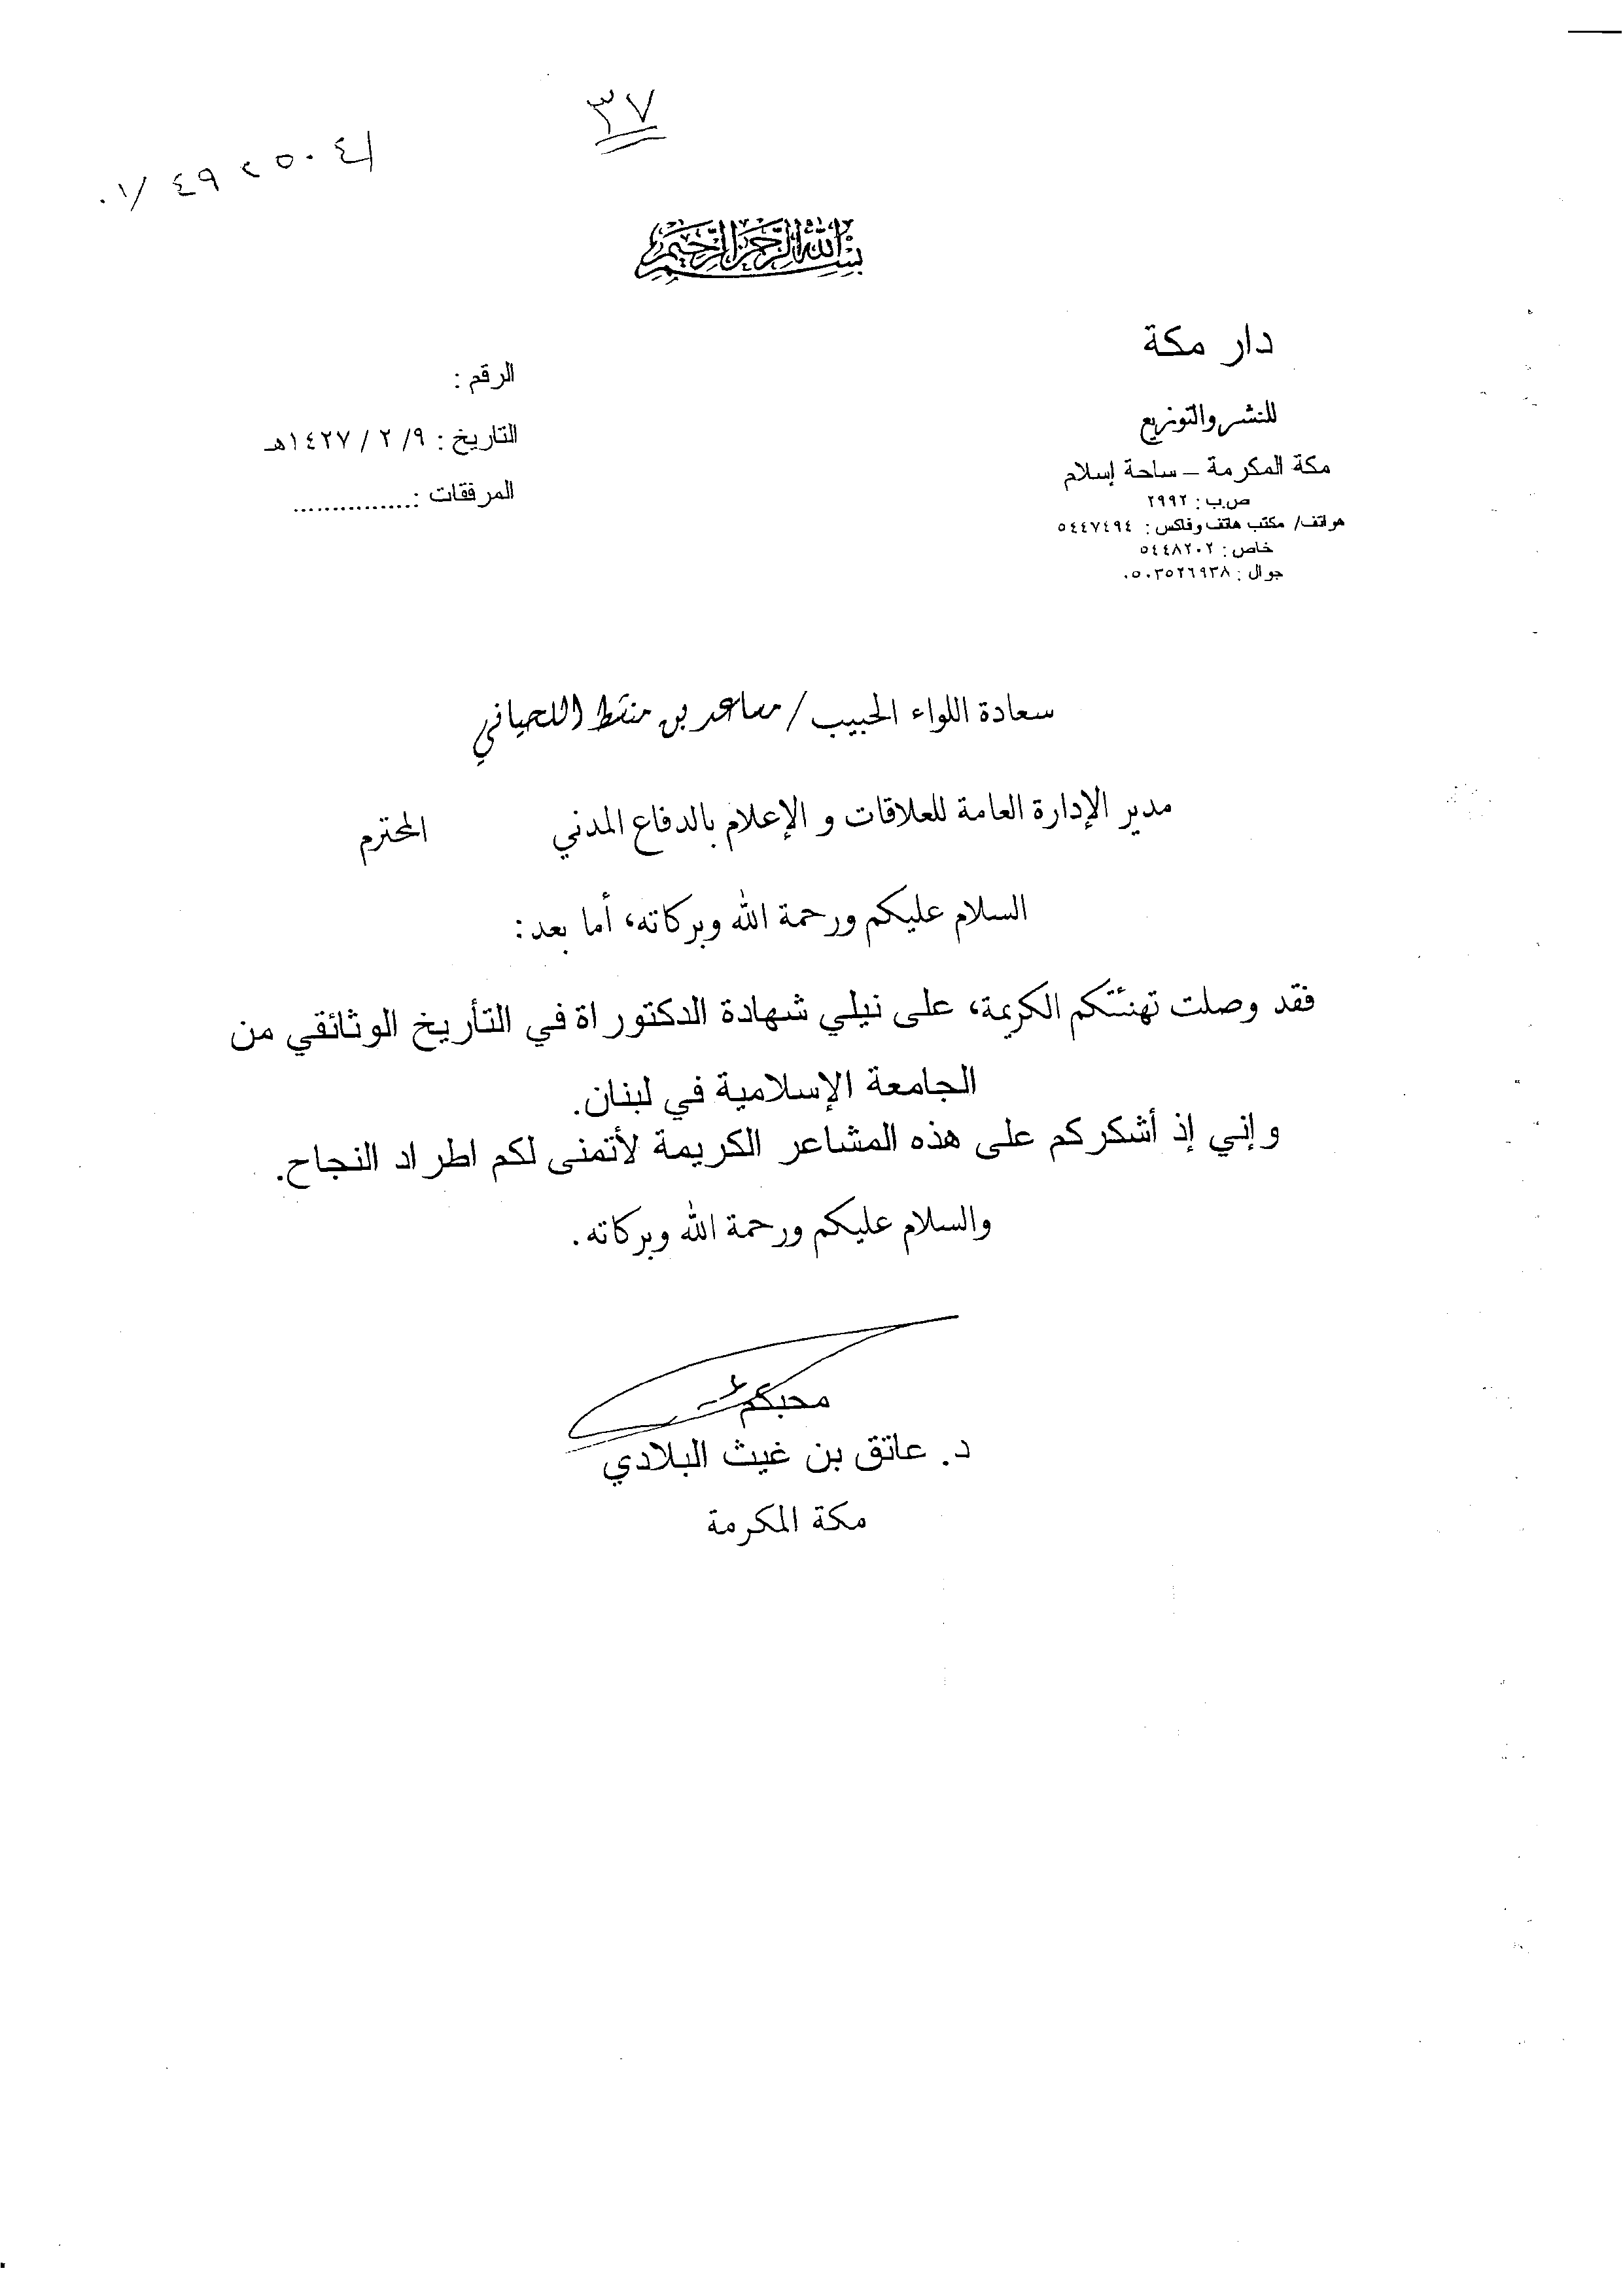 ٣٧
٠١/ ٤٩٢٥٠٤١
بسم الله الرحمن الرحيم
دار مكة
للنشر والتوزيع
مكة المكرمة – ساحة إسلام
ص.ب: ٢٩٩٢
هواتف/ مكتب هاتف وفاكس: ٥٤٤٧٤٩٤
خاص: ٥٤٤٨٢٠٢
جوال: ٠٥٠٣٥٢٦٩٣٨
الرقم:
التاريخ: ٩/ ٢ / ١٤٢٧هـ
المرفقات:...............
سعادة اللواء الحبيب/ مساعد بن منشط اللحياني
مدير الإدارة العامة للعلاقات و الإعلام بالدفاع المدني المحترم
السلام عليكم ورحمة الله وبركاته، أما بعد:
فقد وصلت تهنئتكم الكريمة، على نيلي شهادة الدكتوراة في التأريخ الوثائقي من
الجامعة الإسلامية في لبنان.
وإني إذ أشكركم على هذه المشاعر الكريمة لأتمنى لكم اطراد النجاح.
والسلام عليكم ورحمة الله وبركاته.
محبكم
د. عاتق بن غيث البلادي
مكة المكرمة